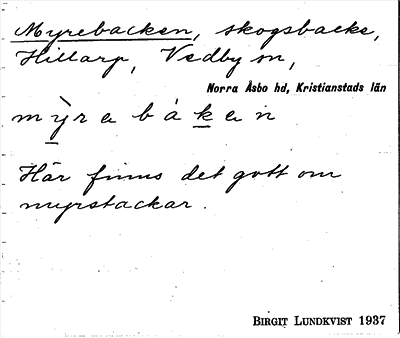 Myrebacken, skogsbacke,
Hillarp, Vedby sn,
Norra Åsbo hd, Kristianstads län
mỳrebáken
Här finns det gott om
myrstackar.
BIRGIT LUNDKVIST 1937